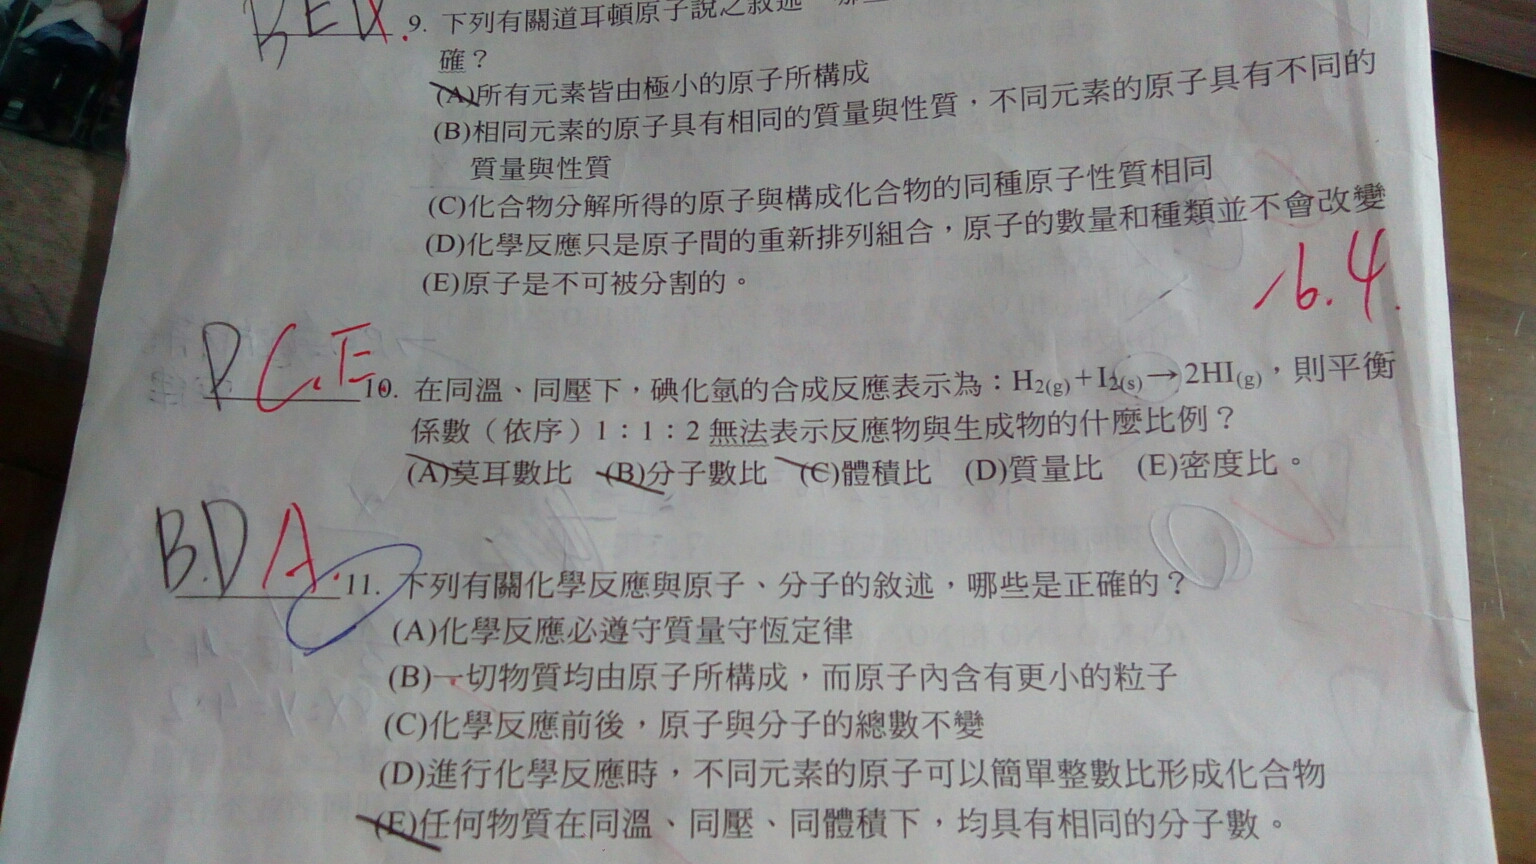 BE
9. 下列有關道耳頓原子說之敘述
確？
(A)所有元素皆由極小的原子所構成
(B)相同元素的原子具有相同的質量與性質，不同元素的原子具有不同的
質量與性質
(C)化合物分解所得的原子與構成化合物的同種原子性質相同
(D)化學反應只是原子間的重新排列組合，原子的數量和種類並不會改變
(E)原子是不可被分割的。
6.4.
D C.E. 10. 在同溫、同壓下，碘化氫的合成反應表示為：H2(g)+I2(s)→2HI(g)，則平衡
係數（依序）1：1：2 無法表示反應物與生成物的什麼比例？
(A)莫耳數比 (B)分子數比 (C)體積比 (D)質量比 (E)密度比。
B.D A. 11. 下列有關化學反應與原子、分子的敘述，哪些是正確的？
(A)化學反應必遵守質量守恆定律
(B)一切物質均由原子所構成，而原子內含有更小的粒子
(C)化學反應前後，原子與分子的總數不變
(D)進行化學反應時，不同元素的原子可以簡單整數比形成化合物
(E)任何物質在同溫、同壓、同體積下，均具有相同的分子數。